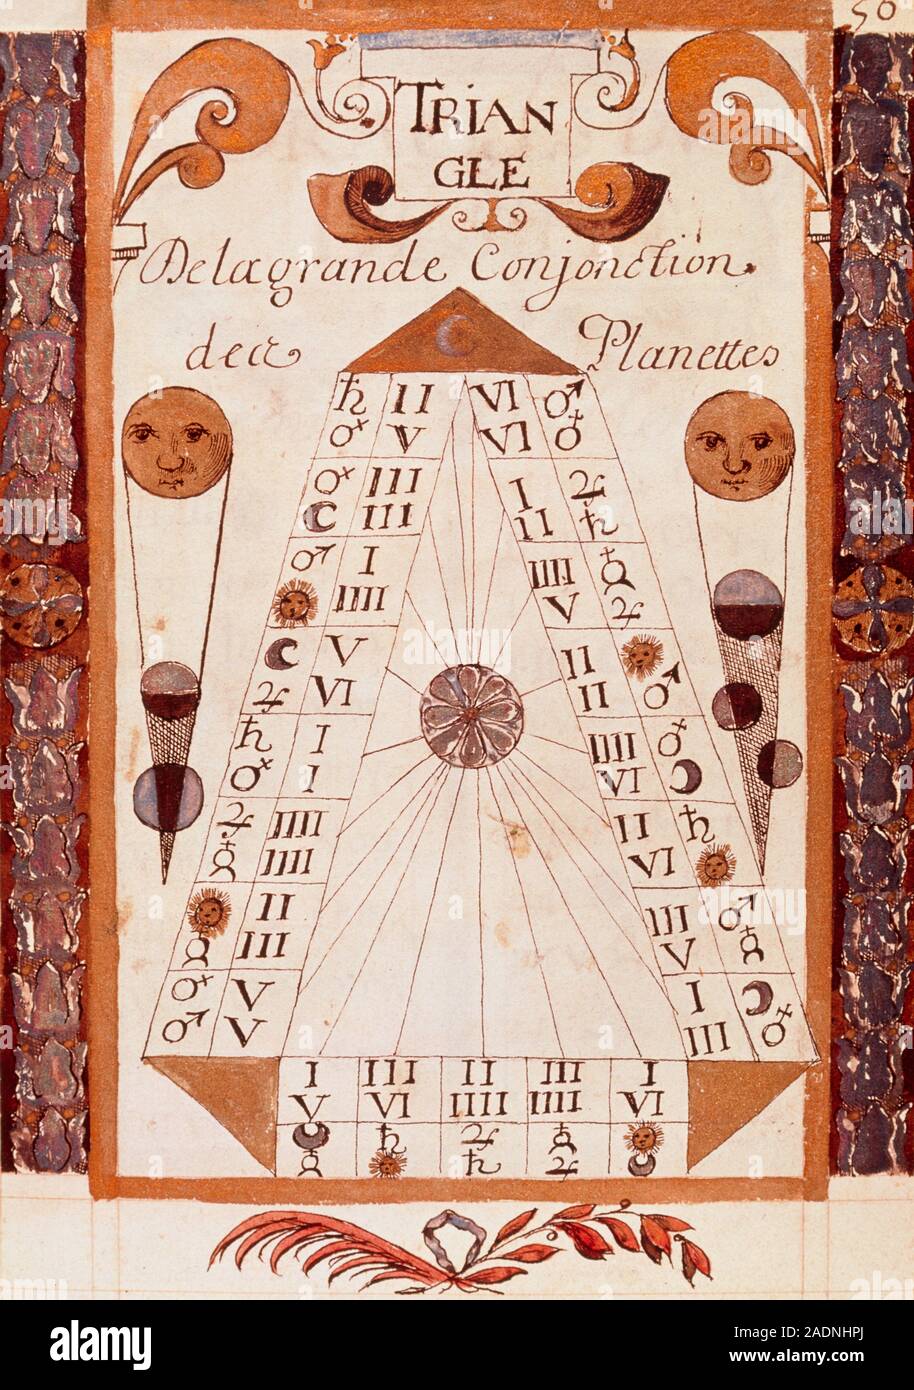 50
TRIAN
GLE
De la grande Conjonction.
des Planettes
♄ II VI ♂
♀ V VI ♀
♀ III I ♃
☾ III II ♄
♂ I IIII ☿
☉ IIII V ♃
☾ V II ☉
♃ VI II ♂
♄ I IIII ♀
♀ I VI ☾
♃ IIII II ♄
☿ IIII VI ☉
☉ II III ♂
☿ III V ☿
♀ V I ☾
♂ V III ♀
I III II III I
V VI IIII IIII VI
☾ ♄ ♃ ☿ ☉
☿ ☉ ♄ ♃ ☾
alamy
Image ID: 2ADNHPJ
www.alamy.com